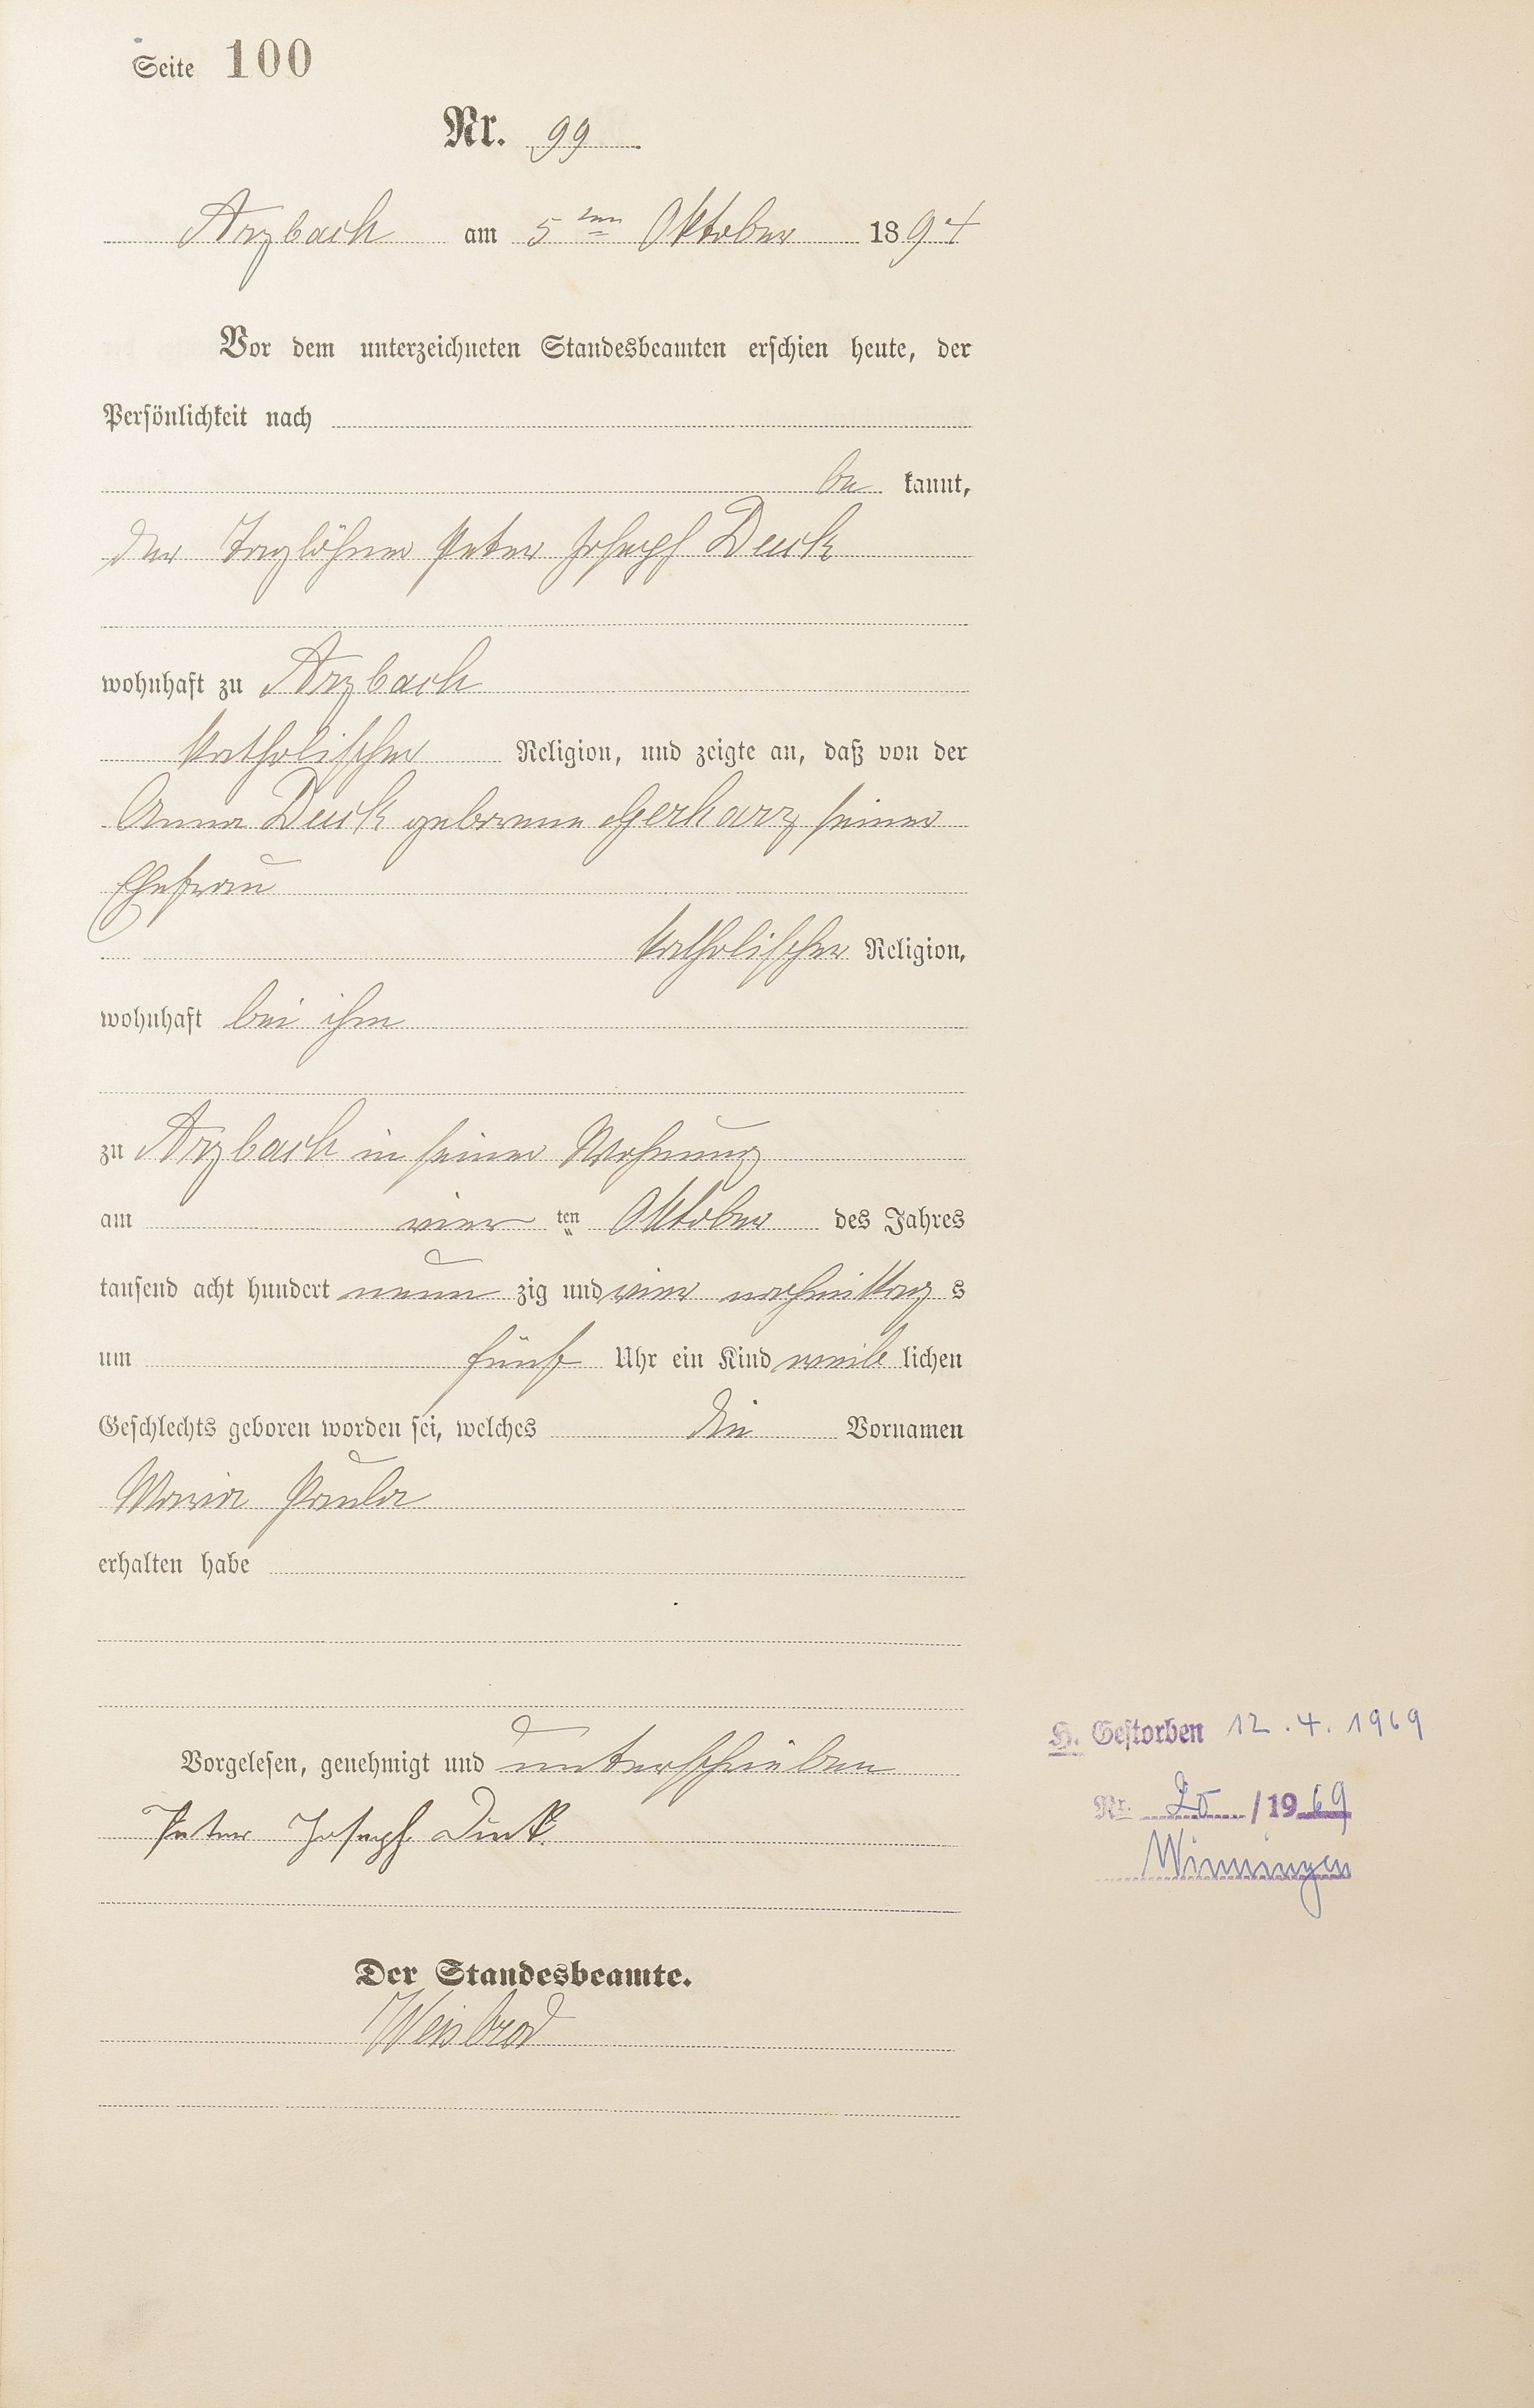 Seite 100
Nr. 99
Arzbach am 5ten Oktober 1894
Vor dem unterzeichneten Standesbeamten erschien heute, der
Persönlichkeit nach
be kannt,
der Taglöhner Peter Joseph Deuk
wohnhaft zu Arzbach
katholischer Religion, und zeigte an, daß von der
Anna Deuk geborene Gerharz seiner
Ehefrau
katholischer Religion,
wohnhaft bei ihm
zu Arzbach in seiner Wohnung
am vier ten Oktober des Jahres
tausend acht hundert neun zig und vier nachmittag s
um fünf Uhr ein Kind weib lichen
Geschlechts geboren worden sei, welches die Vornamen
Maria Paula
erhalten habe
Vorgelesen, genehmigt und unterschrieben
Peter Joseph
Der Standesbeamte.
Weisbrod
H. Gestorben 12.4.1969
Nr. 20 /1969
Winningen